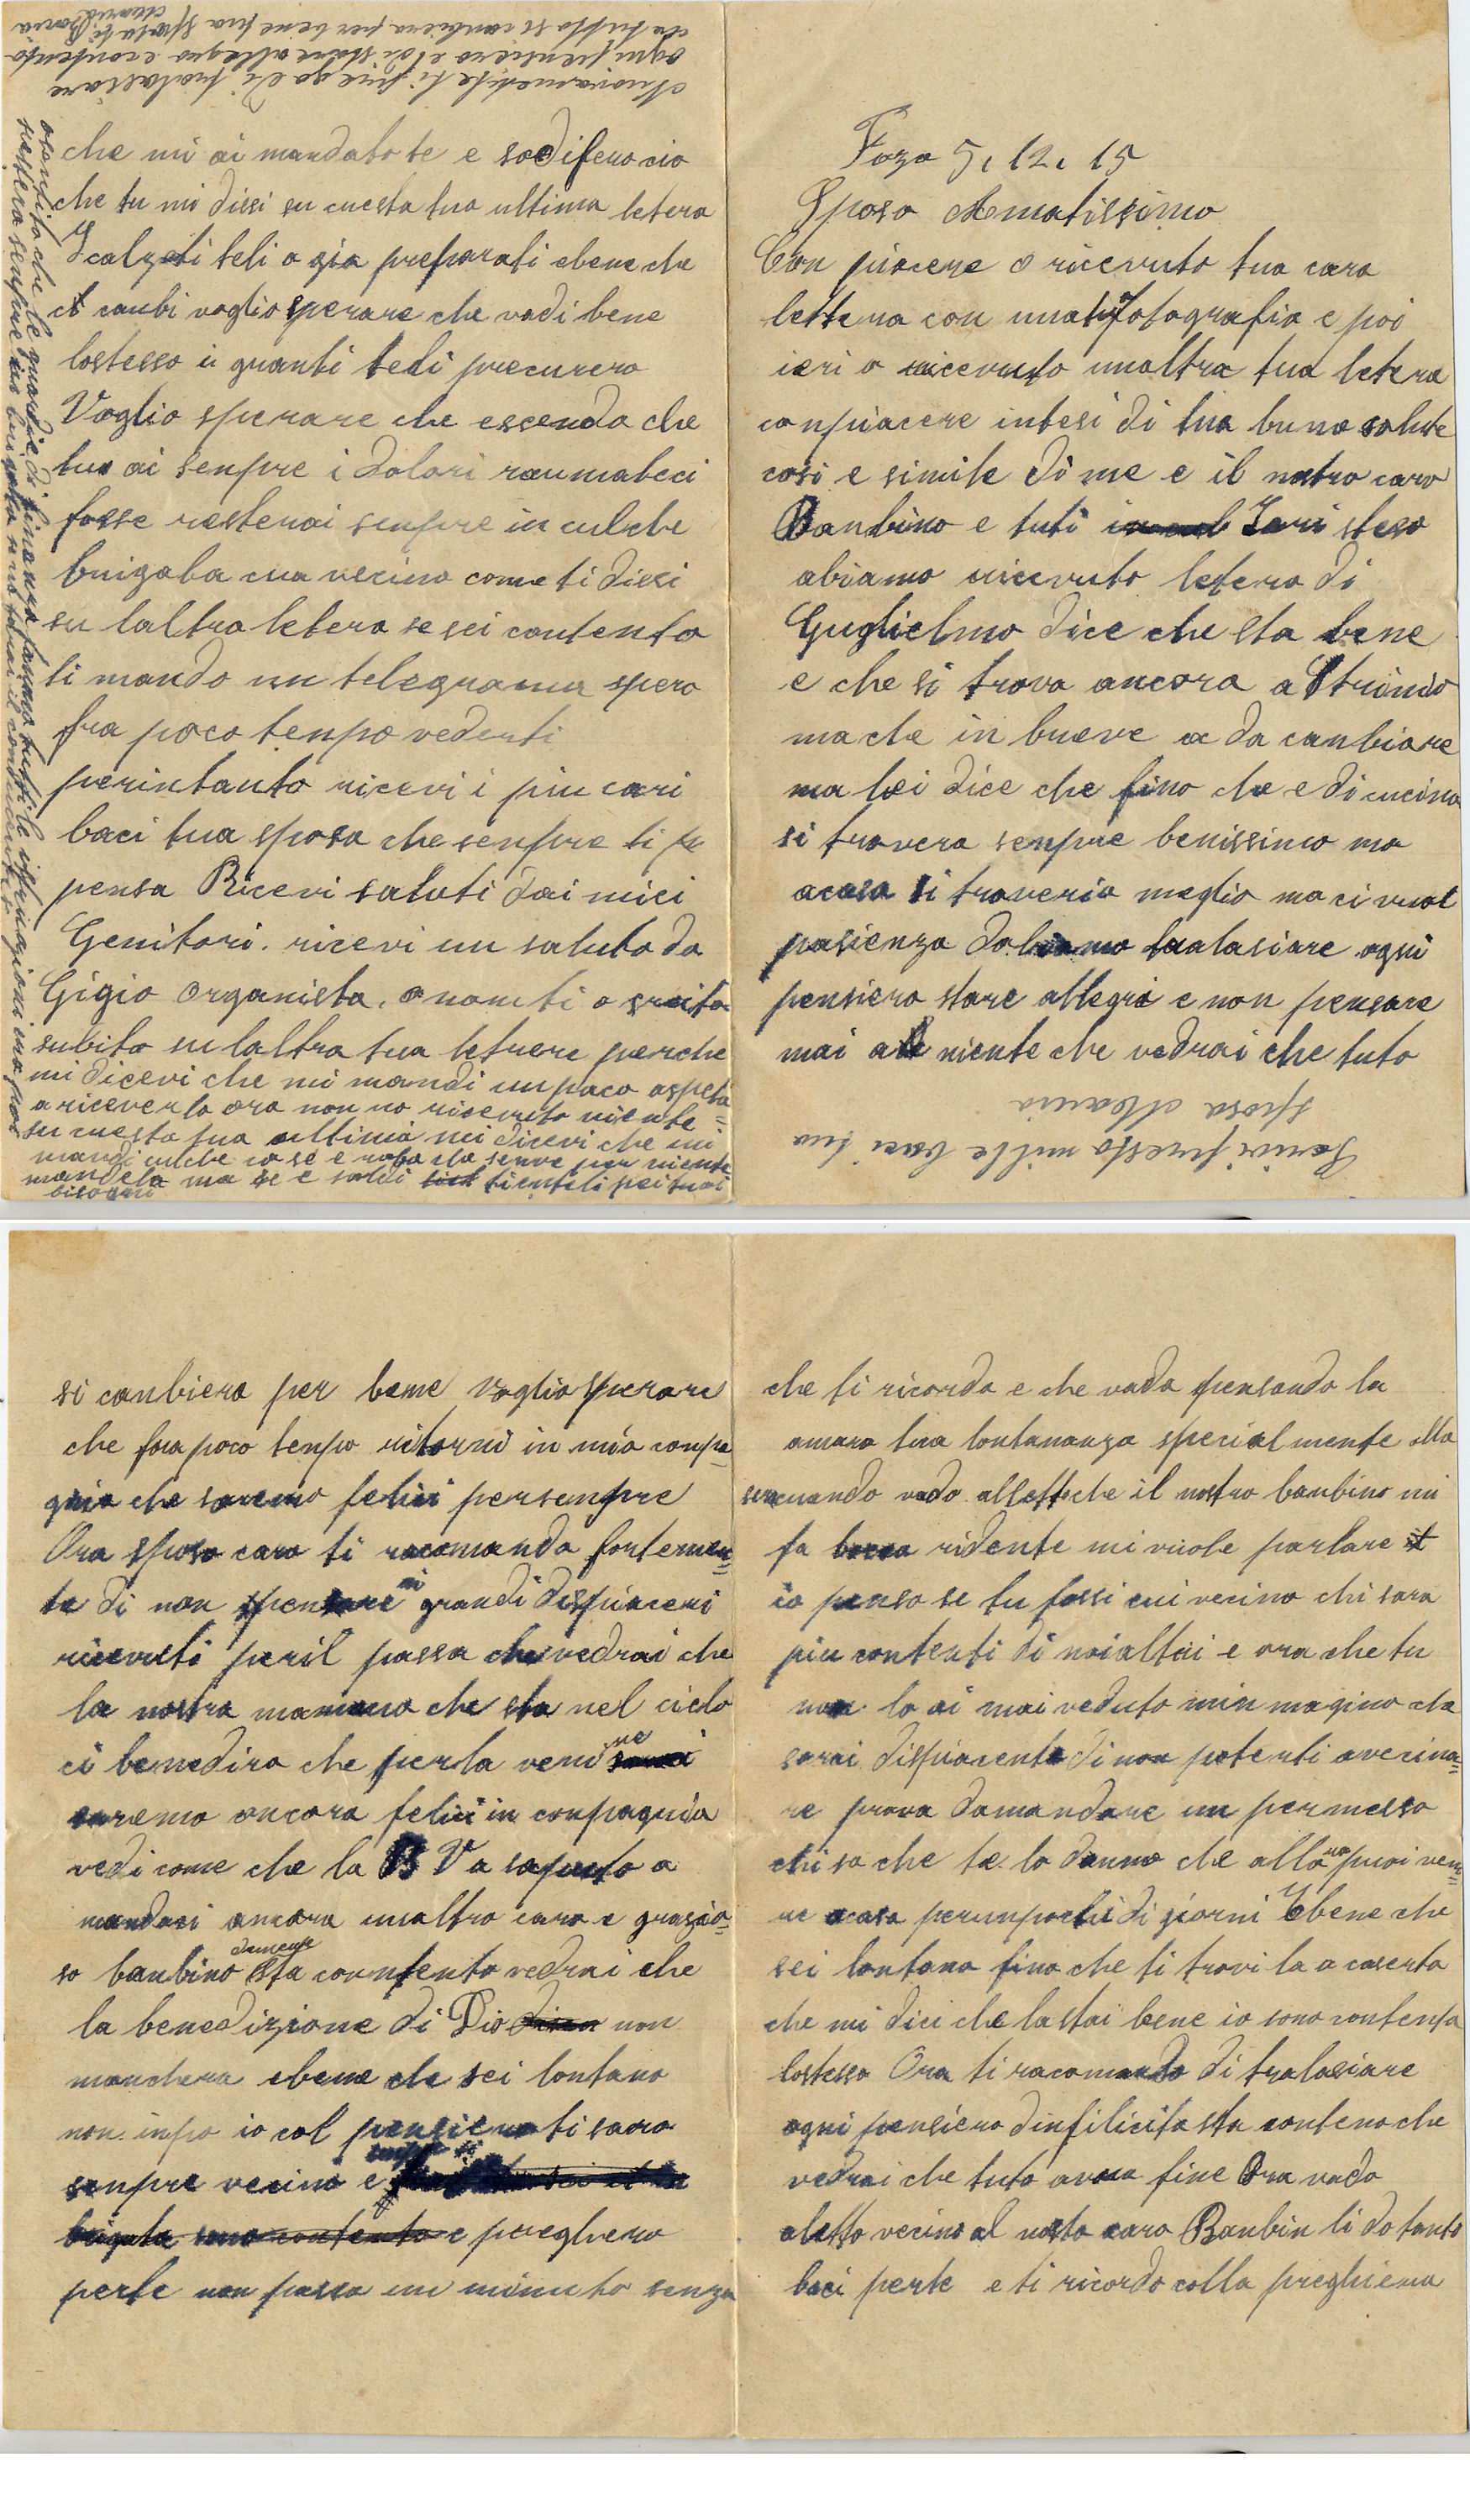 Foza 5, 12, 15
Sposo Amatissimo
Con piacere o ricevuto tua cara
lettera con una tua fotografia e poi
ieri o ricevuto unaltra tua letera
conpiacere intesi di tua buna salute
cosi e simile di me e il nostro caro
Banbino e tuti Ieri steso
abiamo ricevuto letera di
Guglielmo dice che sta bene
e che si trova ancora a Strinio
ma che in breve a da canbiare
ma lei dice che fino che e di cucina
si trovera senpre benissimo ma
acasa si troveria meglio ma ci vuol
pasienza dobiamo tralasiare ogni
pensiero stare allegri e non pensare
mai a niente che vedrai che tuto
si canbiera per bene voglio sperare
che fra poco tenpo ritorni in mia conpa=
gnia che saremo felici persenpre
Ora sposo caro ti racomando fortemen=
te di non pensare ai grandi dispiaceri
riceveti peril passa che vedrai che
la nostra mamma che sta nel cielo
ci benedira che perla veni ne
saremo ancora felici in conpagnia
vedi come che la B V a saputo a
mandaci ancora unaltro caro e grazio=
so banbino sta contento vedrai che
la benedizione di Dio non
manchera ebene che sei lontano
non inpo io col pensiero ti saro
senpre vecino e
e pregherro
perte non passa un minuto senza
che ti ricorda e che vada pensando la
amara tua lontananza specialmente alla
sera cuando vado alletto che il nostro banbino mi
fa ridente mi vuole parlare
io penso se tu fossi cui vecino chi sara
piu contenti di noialtri e ora che tu
non lo ai mai veduto minmagino che
sarai dispiacente di non poterti avecina=
re prova damandare un permesso
chi sa che te lo danno che allora puoi veni=
re acasa perunpochi di giorni Ebene che
sei lontano fino che ti trovi la a caserta
che mi dici che la stai bene io sono contenta
lostesso Ora ti racomando di tralasiare
ogni pensiero dinfilicita sta conteno che
vedrai che tuto avra fine Ora vado
aletto vecino al nosto caro Banbin li do tanto
baci perte e ti ricordo colla preghiera
che mi ai mandato te e sodifero cio
che tu mi dissi su cuesta tua ultima letera
I calzeti teli o gia preparati ebene che
canbi voglio sperare che vadi bene
lostesso i guanti tedi precurero
Voglio sperare che essendo che
tua ai senpre i dolori raumateci
fosse resterai senpre in culche
brigata cua vecino come ti dissi
su laltra letera se sei contento
ti mando un telegrama spero
fra poco tenpo vederti
perintanto ricevi i piu cari
baci tua sposa che senpre ti
pensa Ricevi saluti dai miei
Genitori. ricevi un saluto da
Gigio Organista. o non ti o scrito
subito su laltra tua letrere perche
mi dicevi che mi mandi un paco aspeta=
a riceverlo ora non no ricevuto niente=
su cuesta tua ultima mi dicevi che mi
mandi culche cosa se e roba che serve per niente
mandela ma se e soldi tienteli pei tuoi
bisogni
osentito che le guardie di finanza fanno tutti le istruzioni ma
Nuovamente ti prego di tralasiare
ogni pensiero e di stare allegro e contento
che tutto si canbiera per bene tua sposa ti
Scrivi presto mille baci tua
sposa Maria